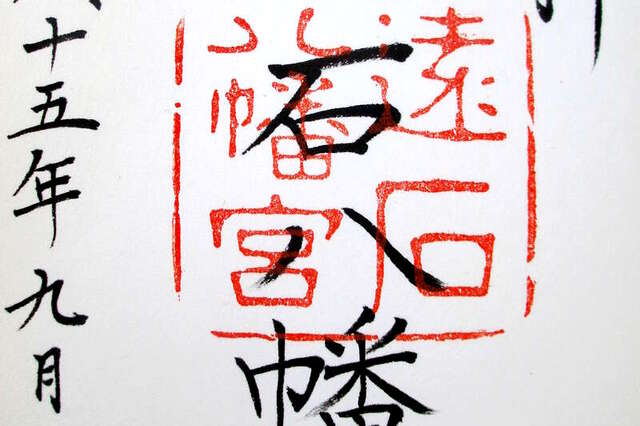 石八幡
遠石
八幡宮
十五年九月